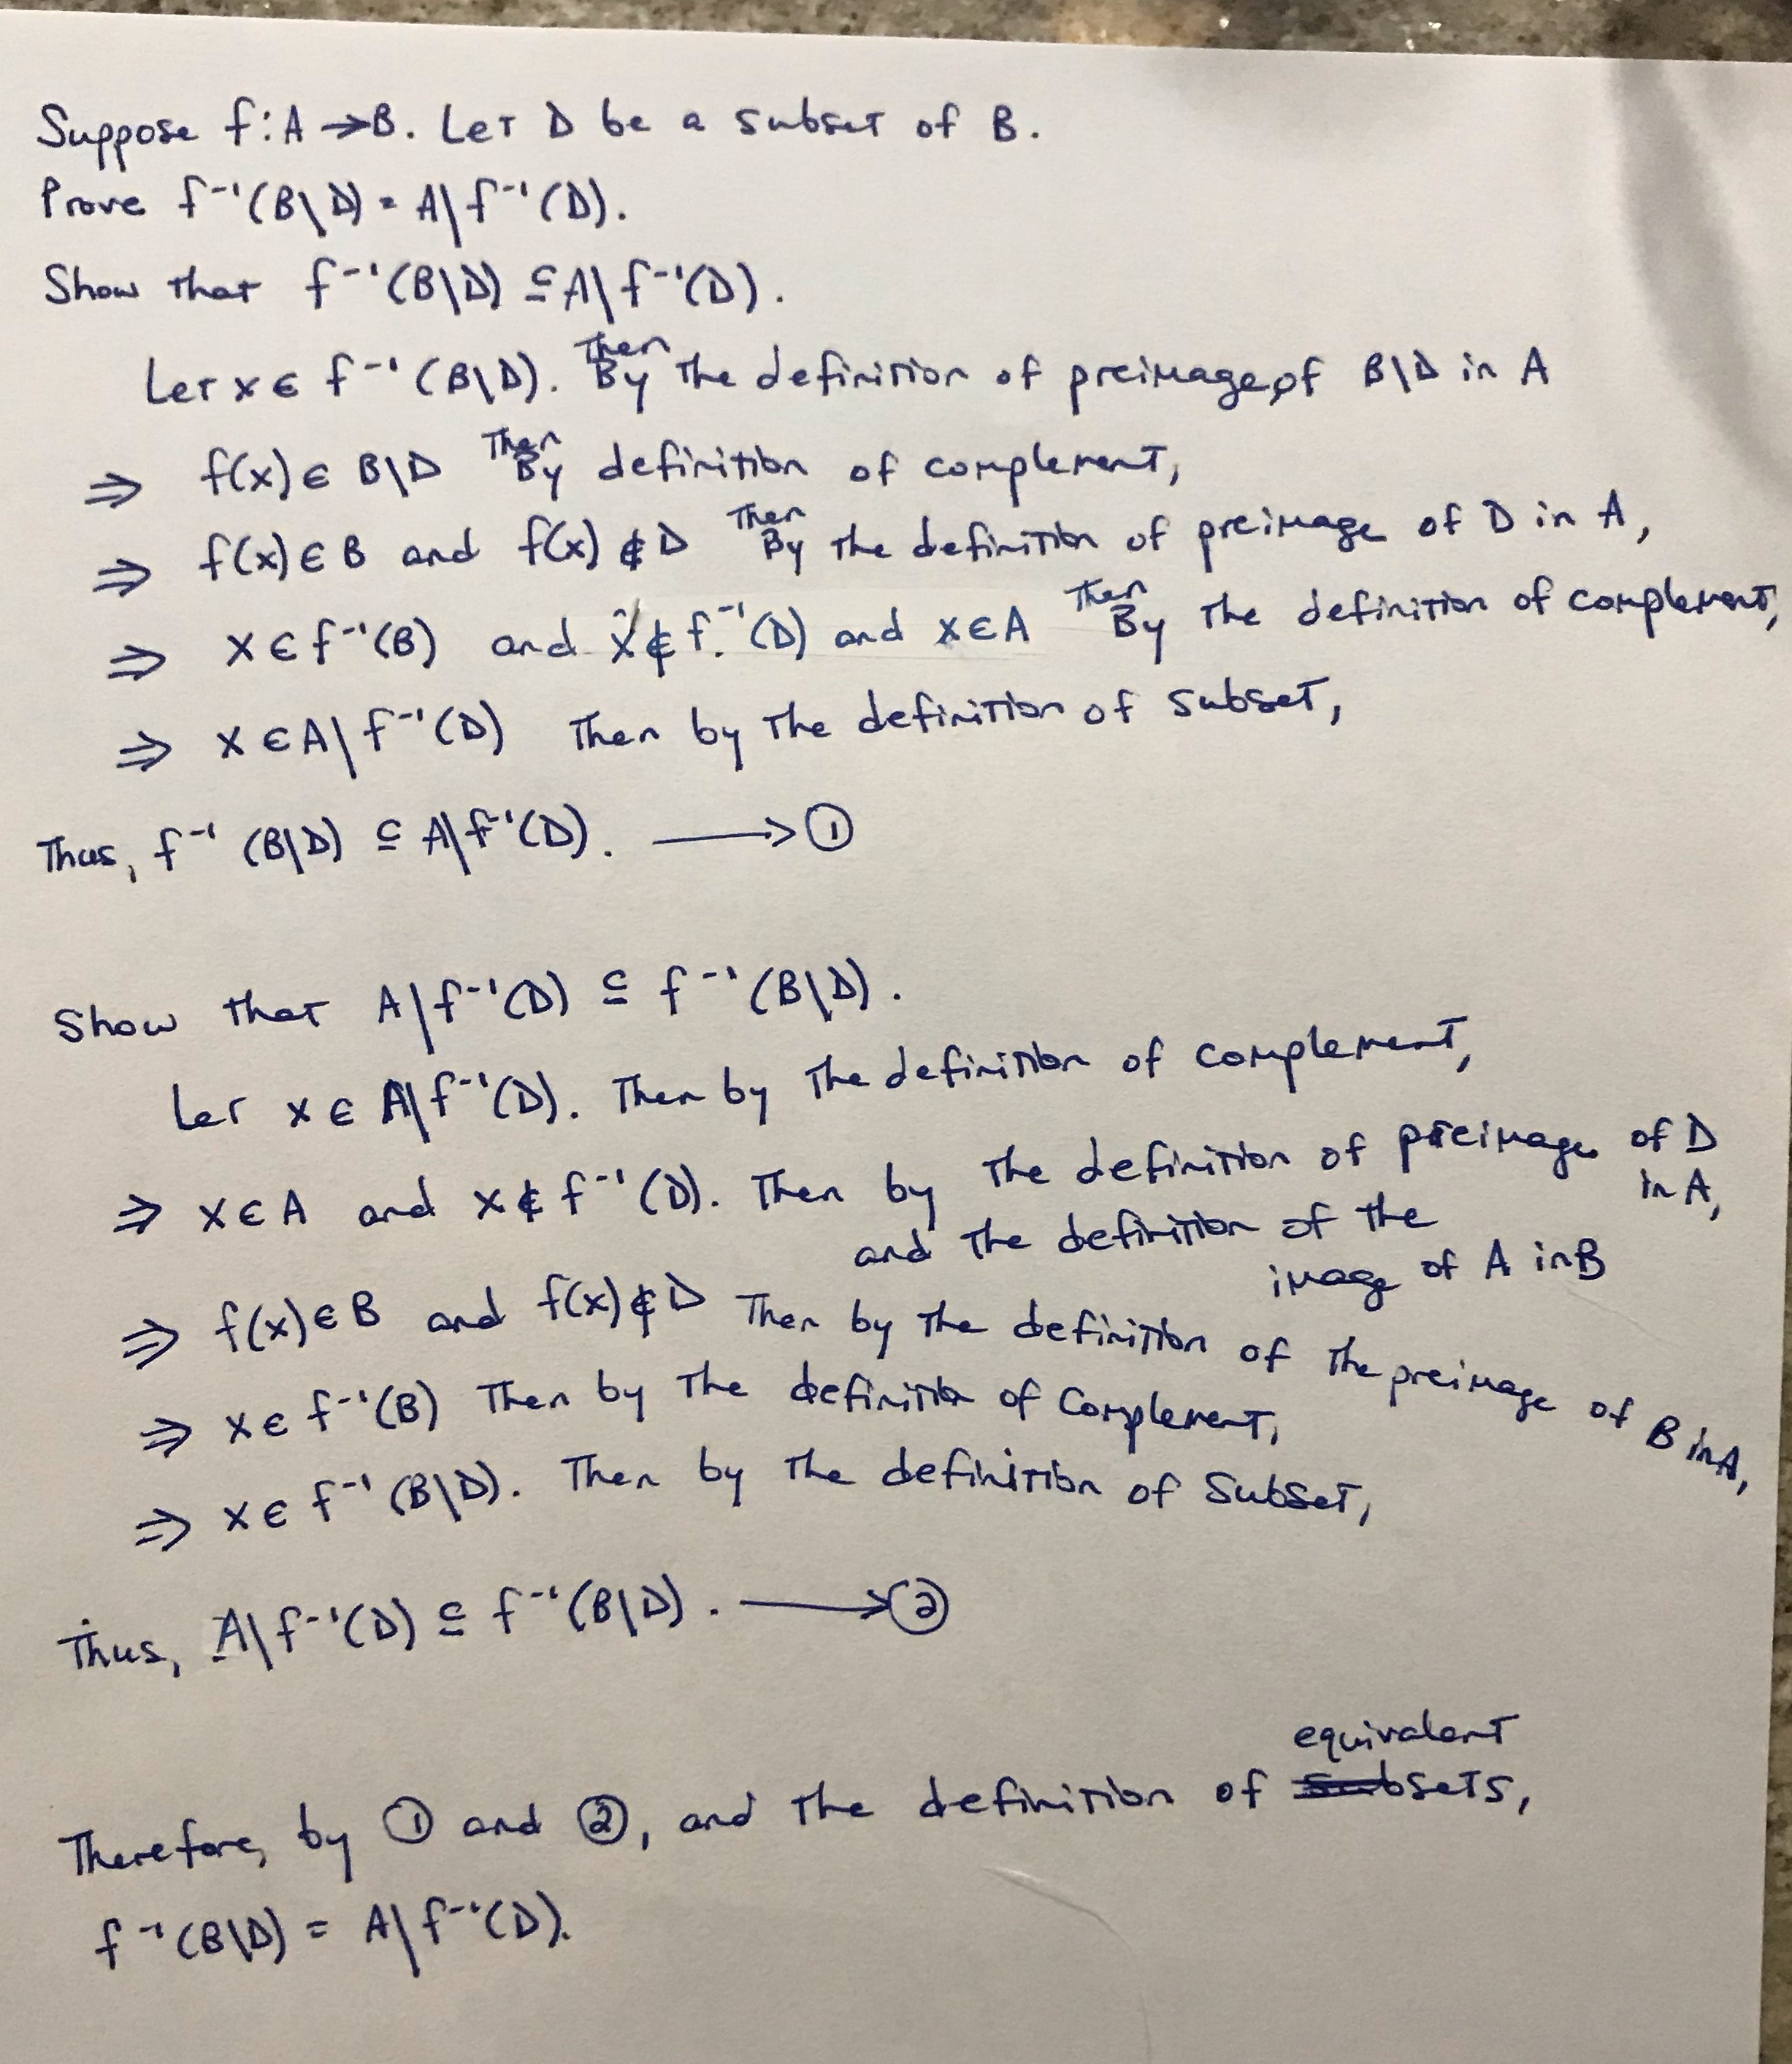 Suppose f: A → B. Let D be a subset of B.
Prove f⁻¹(B\D) = A\f⁻¹(D).
Show that f⁻¹(B\D) ⊆ A\f⁻¹(D).
Let x ∈ f⁻¹(B\D). Then By the definition of preimage, of B\D in A
⇒ f(x) ∈ B\D Then By definition of complement,
⇒ f(x) ∈ B and f(x) ∉ D Then By the definition of preimage of D in A,
⇒ x ∈ f⁻¹(B) and x ∉ f⁻¹(D) and x ∈ A Then By the definition of complement,
⇒ x ∈ A\f⁻¹(D) Then by the definition of subset,
Thus, f⁻¹(B\D) ⊆ A\f⁻¹(D). ⟶ ①
Show that A\f⁻¹(D) ⊆ f⁻¹(B\D).
Let x ∈ A\f⁻¹(D). Then by the definition of complement,
⇒ x ∈ A and x ∉ f⁻¹(D). Then by the definition of preimage of D in A,
and the definition of the
image of A in B
⇒ f(x) ∈ B and f(x) ∉ D Then by the definition of the preimage of B in A,
⇒ x ∈ f⁻¹(B) Then by the definition of Complement,
⇒ x ∈ f⁻¹(B\D). Then by the definition of Subset,
Thus, A\f⁻¹(D) ⊆ f⁻¹(B\D). ⟶ ②
Therefore, by ① and ②, and the definition of equivalent sets,
f⁻¹(B\D) = A\f⁻¹(D).